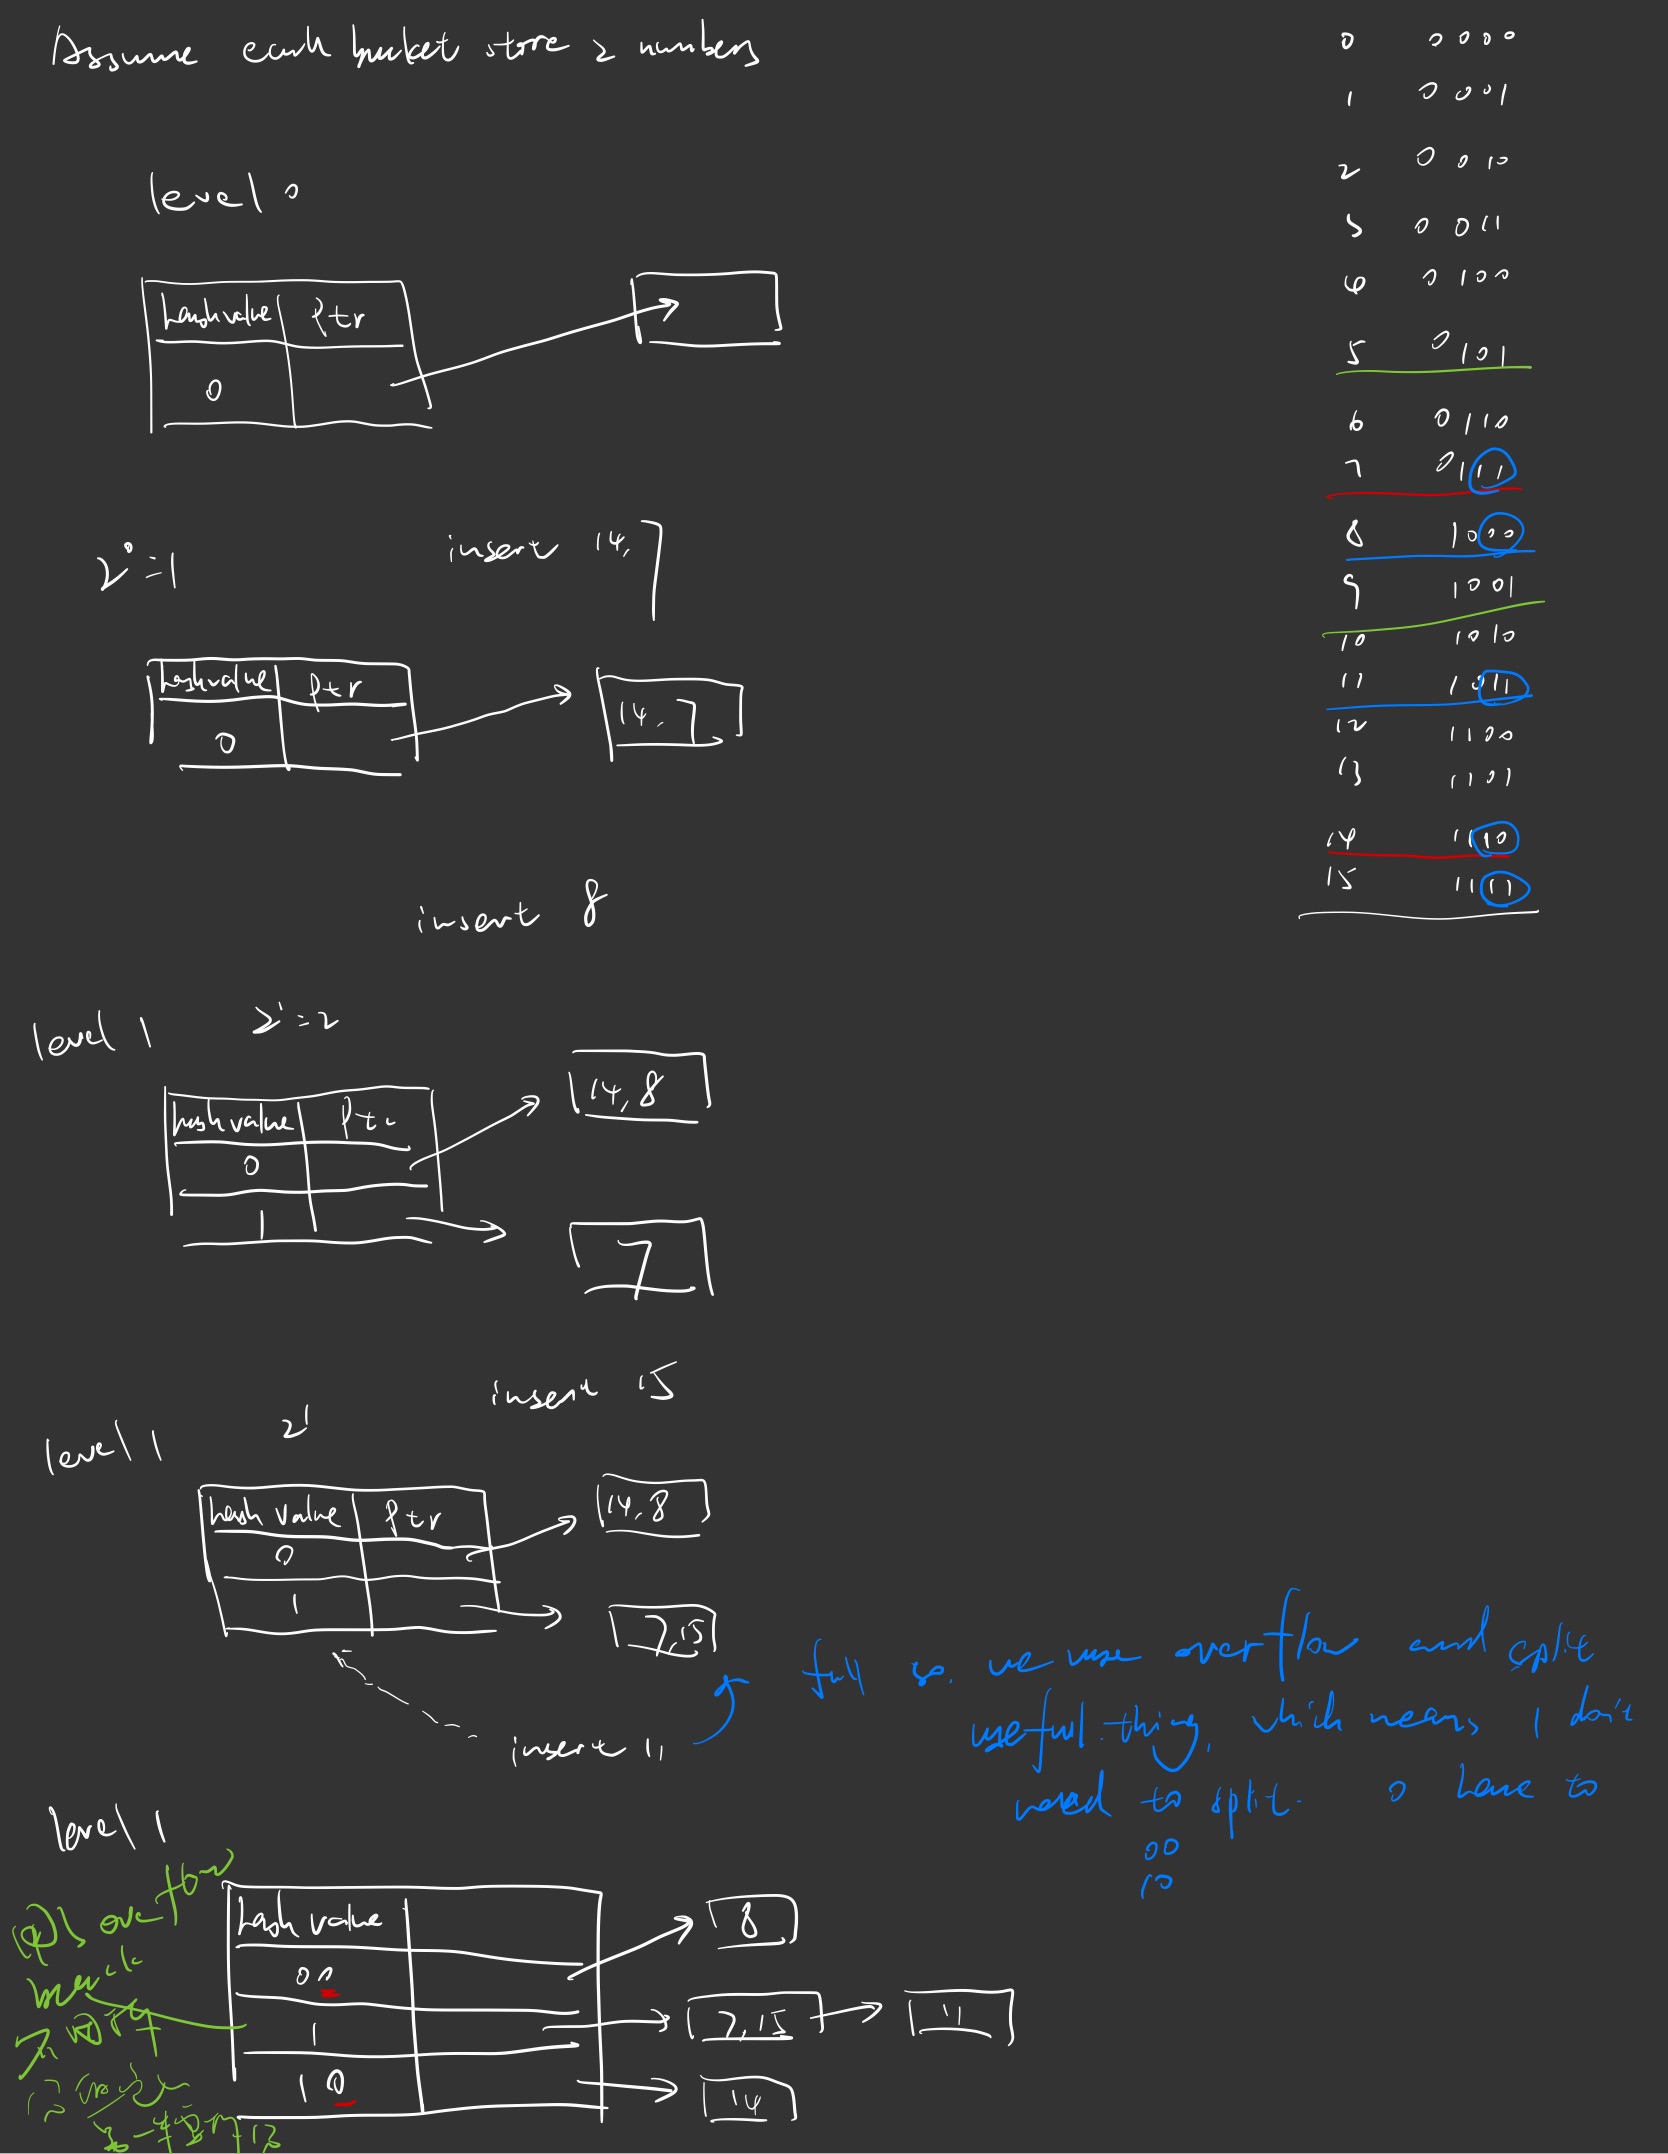 Assume each bucket store 2 numbers
level 0
hash value ptr
0
2⁰=1
insert 14, 7
hash value ptr
0
14, 7
insert 8
level 1 2¹=2
hash value ptr
0
1
14, 8
7
insert 15
level 1 2¹
hash value ptr
0
1
14, 8
7, 15
insert 11
full so, we use overflow and split
useful thing, which means 1 don't
need to split. 0 have to
00
10
level 1
overflow
hash value
00
1
10
8
7, 15
11
14
0 0000
1 0001
2 0010
3 0011
4 0100
5 0101
6 0110
7 0111
8 1000
9 1001
10 1010
11 1011
12 1100
13 1101
14 1110
15 1111